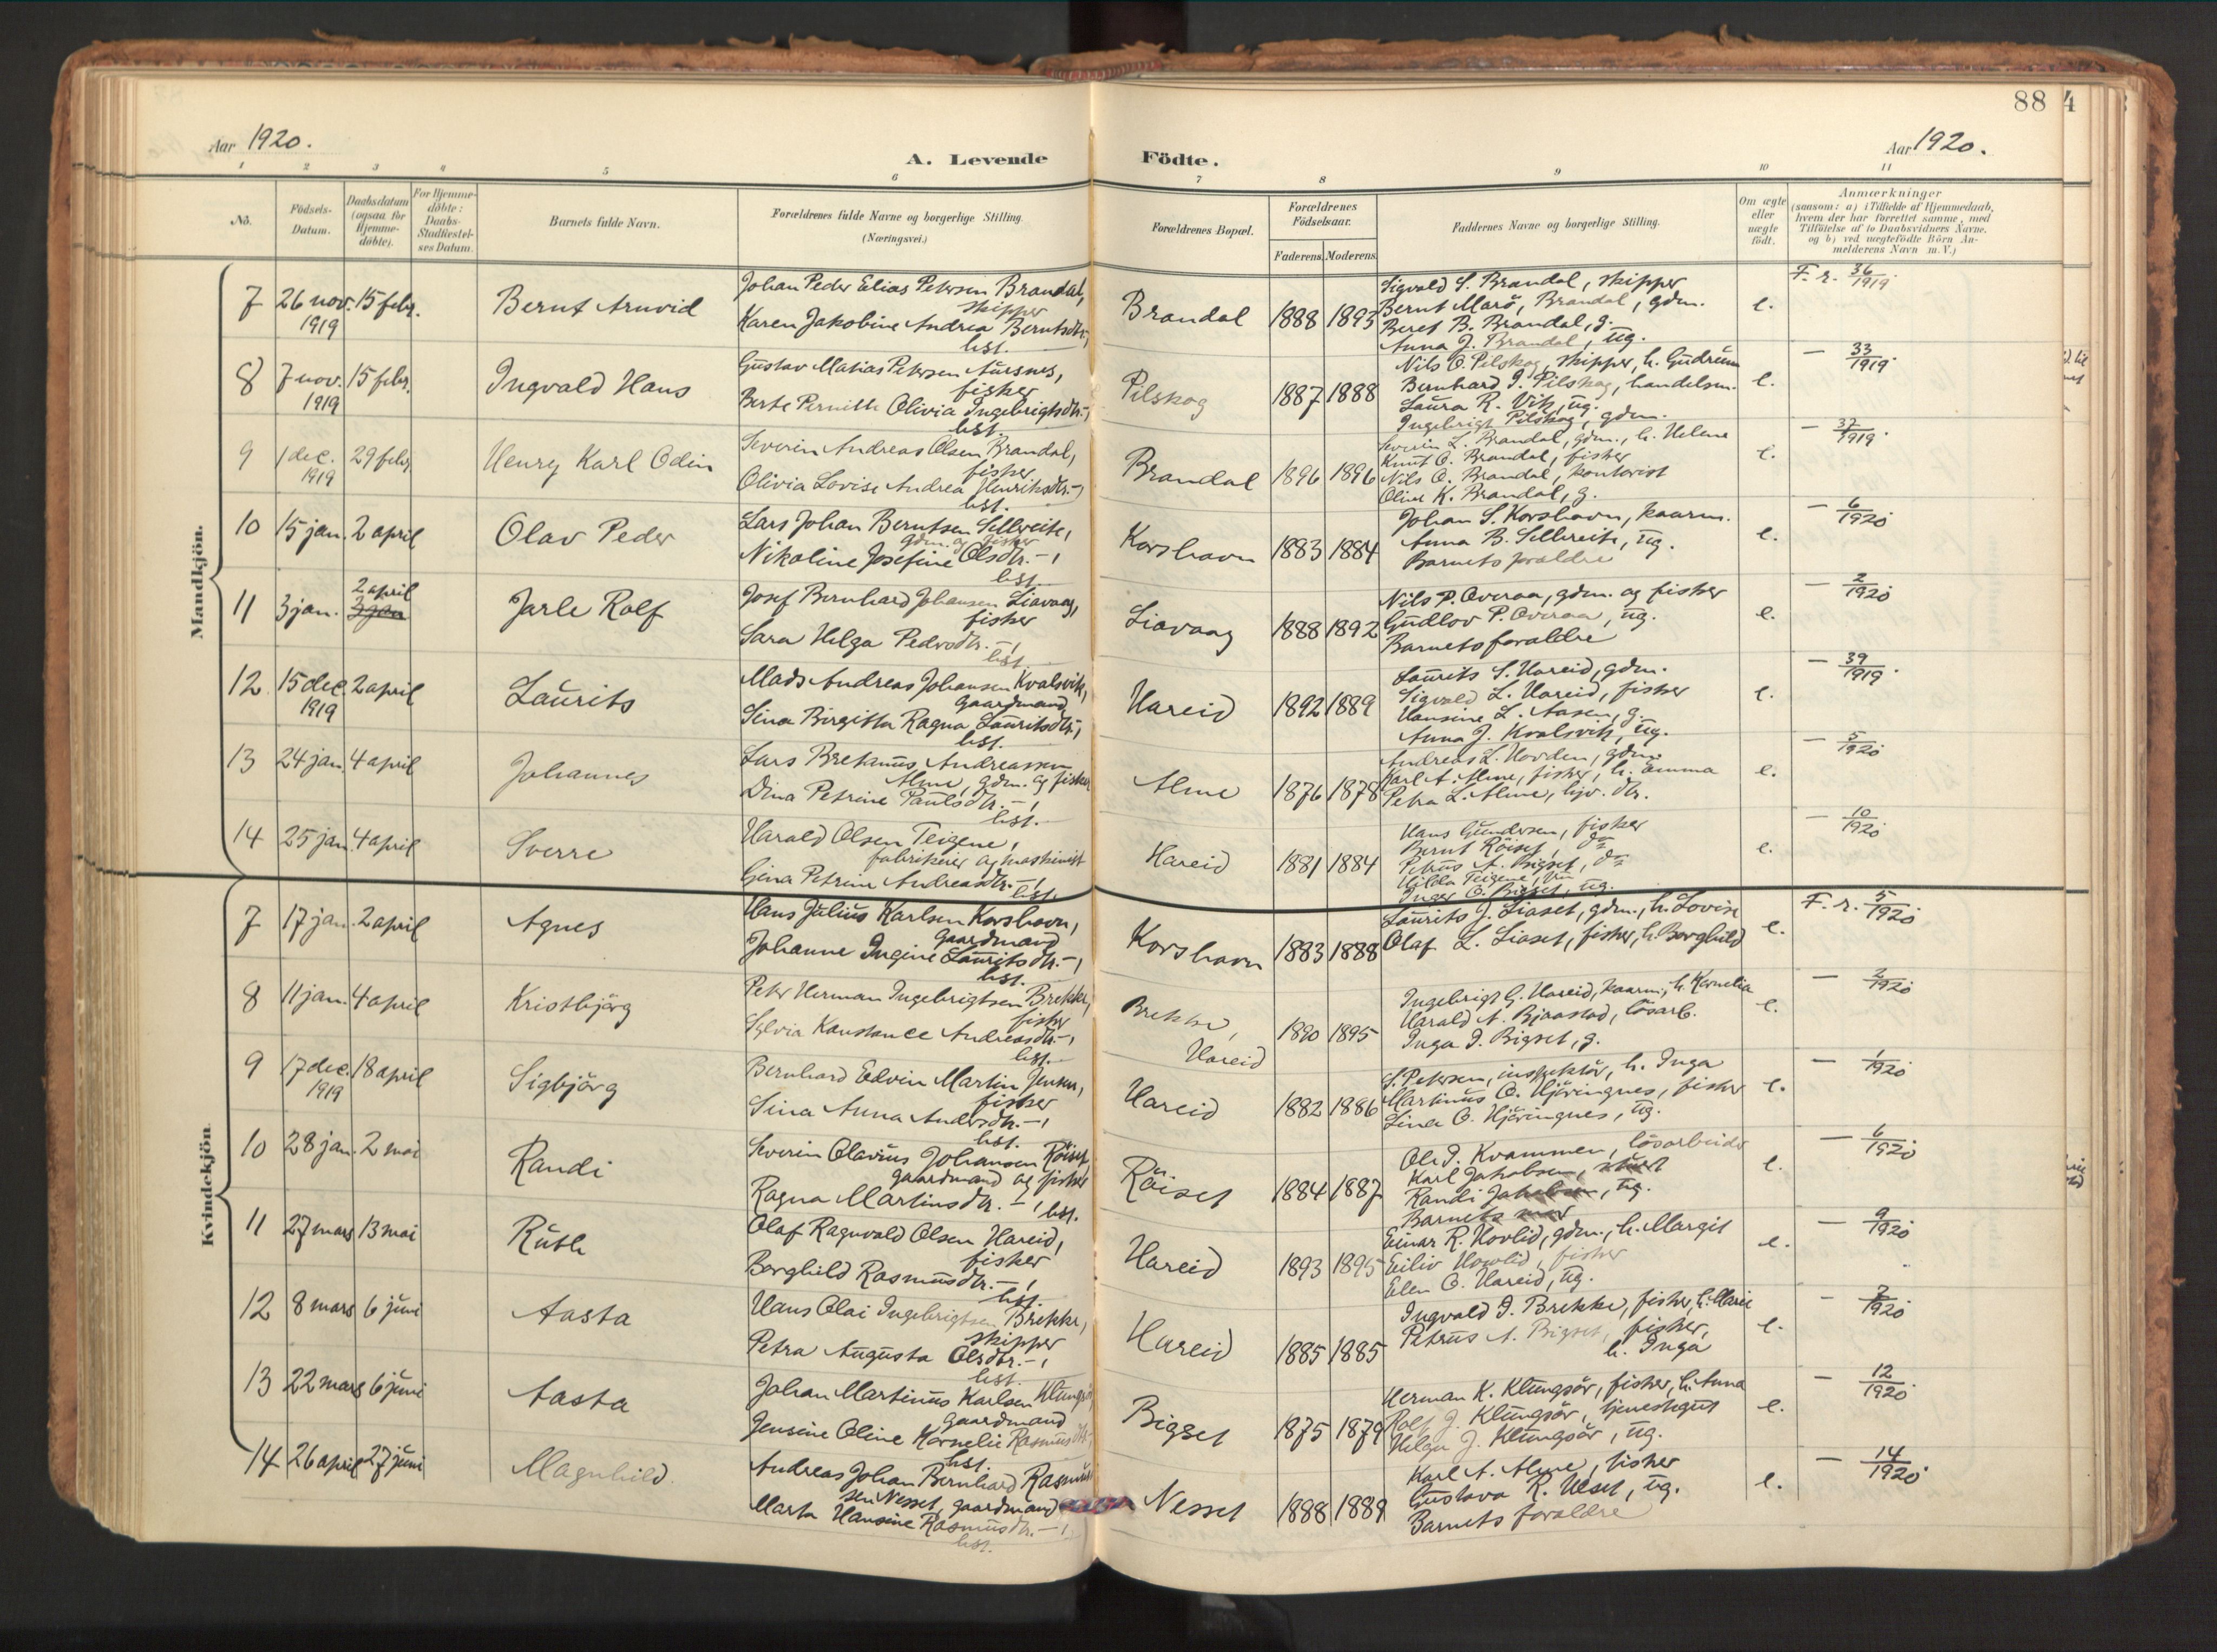 88
4
Aar 1920.
A. Levende
Födte.
Aar 1920.
1 2 3 4 5 6 7 8 9 10 11
No.
Födsels-Datum.
Daabsdatum (ogsaa for Hjemme-döbte).
For Hjemme-döbte: Daabs-Stadfæstel-ses Datum.
Barnets fulde Navn.
Forældrenes fulde Navne og borgerlige Stilling. (Næringsvei.)
Forældrenes Bopæl.
Forældrenes Födselsaar.
Faderens. Moderens.
Faddernes Navne og borgerlige Stilling.
Om ægte eller uægte födt.
Anmærkninger
(saasom: a) i Tilfælde af Hjemmedaab,
hvem der har forrettet samme, med
Tilföielse af to Daabsvidners Navne,
og b) ved uægtefödte Börn An-
melderens Navn m. V.)
Mandkjön.
7 26 nov. 1919 15 febr. Bernt Arnvid
Johan Peder Elias Petersen Brandal,
skipper
Karen Jakobine Andrea Berntsdtr.,
hst.
Brandal 1888 1893
Sigvald S. Brandal, skipper
Bernt Marö, Brandal, gdm.
Beret B. Brandal, g.
Anna J. Brandal, ug.
e. F. r. 36/1919.
8 7 nov. 1919 15 febr. Ingvald Hans
Gustav Matias Petersen Aursnes,
fisker
Berte Pernille Olivia Ingebrigtsdtr.,
hst.
Pilskog 1887 1888
Nils O. Pilskog, skipper, h. Gudrun
Bernhard I. Pilskog, handelsm.
Laura R. Vik, ug.
Ingebrigt Pilskog, gdm.
e. — 33/1919.
9 1 dec. 1919 29 febr. Henry Karl Odin
Severin Andreas Olsen Brandal,
fisker
Olivia Lovise Andrea Henriksdtr. —,
hst.
Brandal 1896 1896
Severin L. Brandal, gdm., h. Helene
Knut O. Brandal, fisker
Nils O. Brandal, kontorist
Oline K. Brandal, g.
e. — 37/1919.
10 15 jan. 2 april Olav Peder
Lars Johan Berntsen Sellereite,
gdm. og fisker
Nikoline Josefine Olsdtr. —,
hst.
Korshavn 1883 1884
Johan S. Korshavn, kaarm.
Anna B. Sellreite, ug.
Barnets foraldre
e. — 6/1920.
11 3 jan. 2 april Jarle Rolf
Josef Bernhard Johansen Liavaag,
fisker
Sara Helga Pedersdtr. —,
hst.
Liavaag 1888 1892
Nils P. Overaa, gdm. og fisker
Gudlov P. Overaa, ug.
Barnets foraldre
e. — 2/1920
12 15 dec. 1919 2 april Laurits
Mads Andreas Johansen Kvalsvik,
gaardmand
Sina Birgitta Ragna Lauritsdtr.,
hst.
Hareid 1892 1889
Laurits S. Hareid, gdm.
Sigvald L. Hareid, fisker
Hansine L. Aasen, g.
Anna J. Kvalsvik, ug.
e. — 39/1919.
13 24 jan. 4 april Johannes
Lars Bretanus Andreassen
Alme, gdm. og fisker
Dina Petrine Paulsdtr. —,
hst.
Alme 1876 1878
Andreas L. Hovden, gdm.
Karl A. Alme, fisker, h. Emma
Petra L. Alme, hjv. dtr.
e. — 5/1920
14 25 jan. 4 april Sverre
Harald Olsen Teigene,
fabrikeier og maskinist
Gina Petrine Andreasdtr. —,
hst.
Hareid 1881 1884
Hans Gundersen, fisker
Bernt Röiset, do
Petrus A. Bigset, do
Hilda Teigene,
Inger O. Bigset, ug.
e. — 10/1920
Kvindekjön.
7 17 jan. 2 april Agnes
Hans Julius Karlsen Korshavn,
gaardmand
Johanne Ingine Lauritsdtr. —,
hst.
Korshavn 1883 1888
Laurits J. Liaset, gdm., h. Lovise
Olaf L. Liaset, fisker, h. Borghild
e. F. r. 5/1920
8 11 jan. 4 april Kristbjörg
Peter Herman Ingebrigtsen Brekke,
fisker
Sylvia Konstance Andreasdtr. —,
hst.
Brekke, Hareid 1890 1895
Ingebrigt G. Hareid, kaarm., h. Kornelia
Harald A. Bjaastad, lösarb.
Inga I. Bigset, g.
e. — 2/1920
9 17 dec. 1919 18 april Sigbjörg
Bernhard Edvin Martin Jensen,
fisker
Sina Anna Andersdtr. —,
hst.
Hareid 1882 1886
S. Petersen, inspektör, h. Inga
Martinus O. Hjöringnes, fisker
Lina O. Hjöringnes, ug.
e. — 1/1920
10 28 jan. 2 mai Randi
Severin Olavius Johansen Röiset,
gaardmand og fisker
Ragna Martinsdtr. —, hst.
Röiset 1884 1887
Ole I. Kvammen, lösarbeider
Karl Jakobsen,
Randi Jakobsen, ug.
Barnets mor
e. — 6/1920
11 27 mars 13 mai Ruth
Olaf Ragnvald Olsen Hareid,
fisker
Borghild Rasmusdtr. —,
hst.
Hareid 1893 1895
Einar R. Hovlid, gdm., h. Margit
Eiliv Hovlid, fisker
Elen O. Hareid, ug.
e. — 9/1920
12 8 mars 6 juni Aasta
Hans Olai Ingebrigtsen Brekke,
skipper
Petra Augusta Olsdtr. —,
hst.
Hareid 1885 1885
Ingvald I. Brekke, fisker, h. Marie
Petrus A. Bigset, fisker,
h. Inga
e. — 7/1920
13 22 mars 6 juni Aasta
Johan Martinus Karlsen Klungsör
gaardmand
Jensine Oline Kornelie Rasmusdtr.
hst.
Bigset 1875 1879
Herman K. Klungsör, fisker, h. Anna
Rolf J. Klungsör, tjenestegut
Helga J. Klungsör, ug.
e. — 12/1920.
14 26 april 27 juni Magnhild.
Andreas Johan Bernhard Rasmus
sen Nesset, gaardmand
Marta Hansine Rasmusdtr. —,
hst.
Nesset 1888 1889
Karl A. Alme, fisker
Gustava R. Ulset, ug.
Barnets foraldre
e. — 14/1920